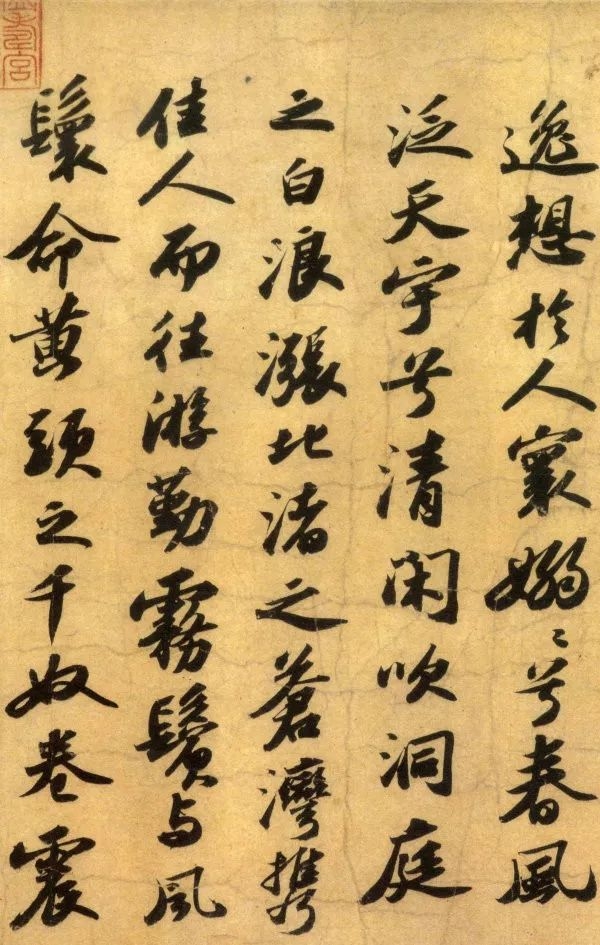 逸想於人寰嫋〻兮春風
泛天宇兮清閑吹洞庭
之白浪漲北渚之蒼灣攜
佳人而往游勤霧鬢与風
鬟命黃頭之千奴卷震